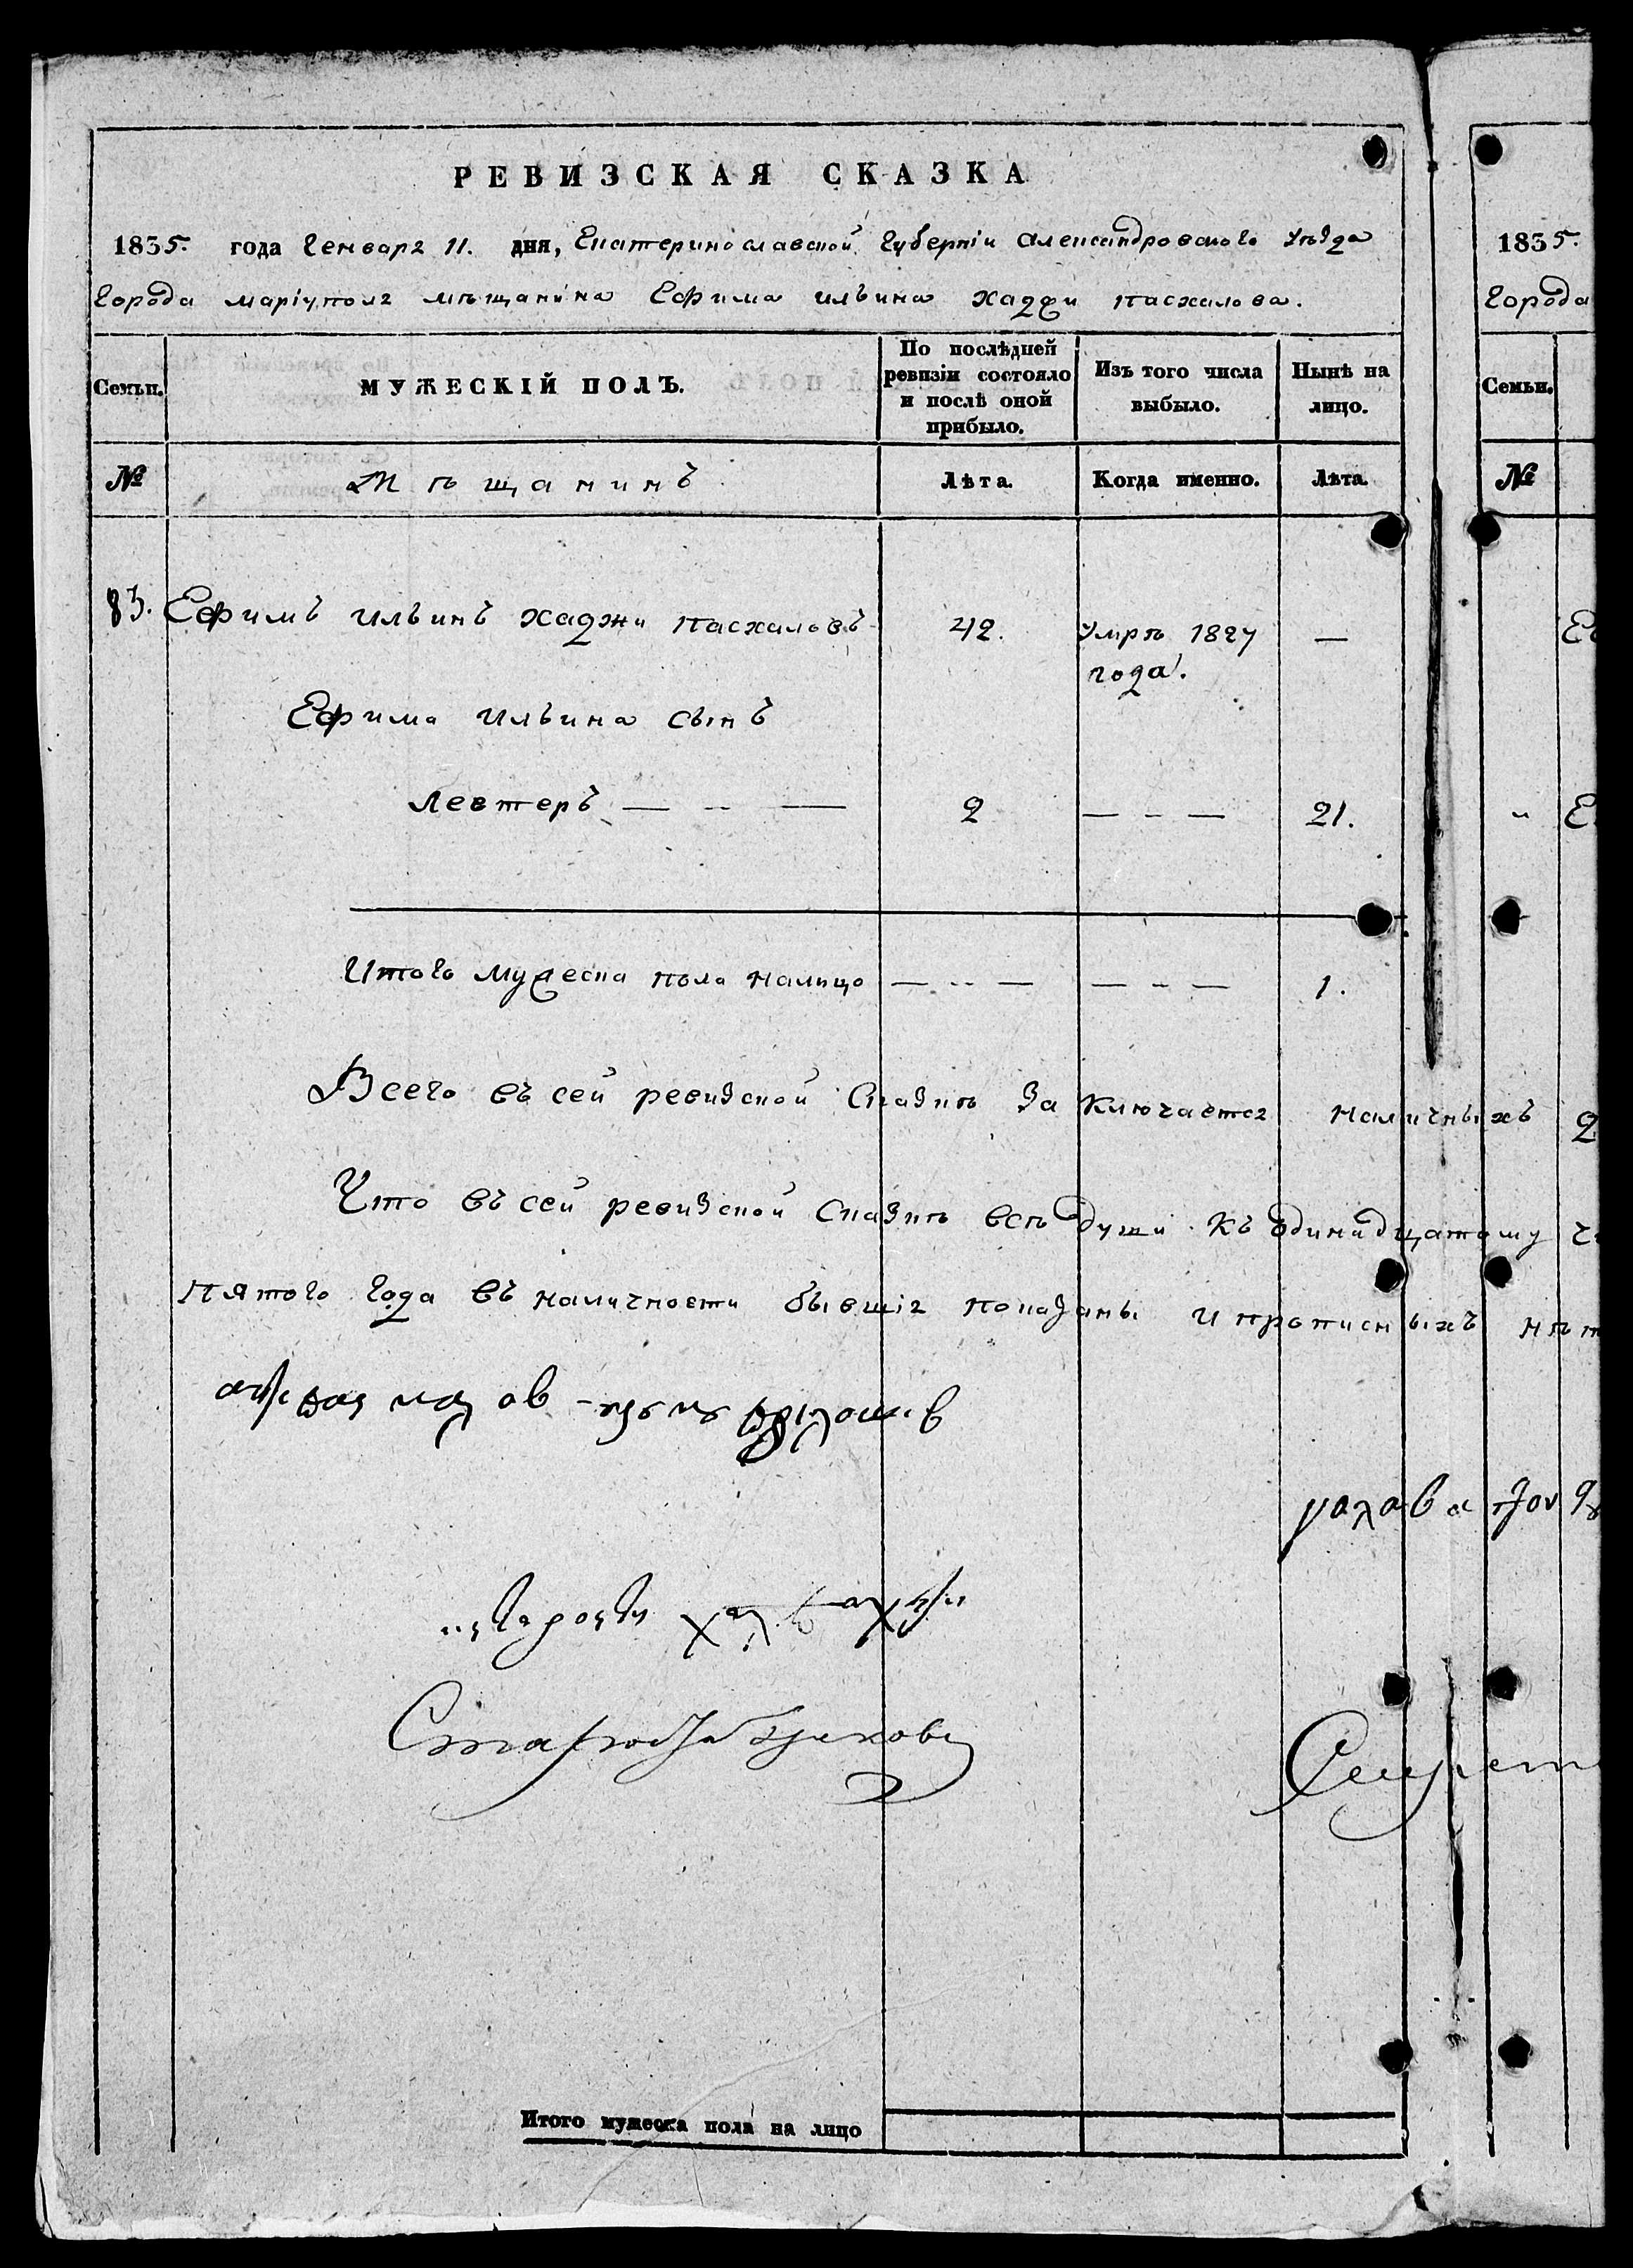 РЕВИЗСКАЯ СКАЗКА
1835. года Генваря 11. дня, Екатеринославской Губерніи Александровскаго Уѣзда
Города Маріуполя мѣщанина Ефима Ильина Хаджи Пасхалова.
Семьи.
МУЖЕСКІЙ ПОЛЪ.
По послѣдней
ревизіи состояло
и послѣ оной
прибыло.
Изъ того числа
выбыло.
Нынѣ на
лицо.
№
Мѣщанинъ
Лѣта.
Когда именно.
Лѣта.
83. Ефимъ Ильинъ Хаджи Пасхаловъ 42. Умре 1827 —
года.
Ефима Ильина сынъ
Левтеръ — - — 2 — - — 21.
Итого мужеска пола налицо — - — — - — 1.
Всего въ сей ревизской Сказкѣ заключается наличныхъ
Что въ сей ревизской Сказкѣ всѣ души къ одинадцатому
пятого года въ наличности бывшія показаны и прописныхъ
Итого мужеска пола на лицо
1835.
Города
Семьи.
№